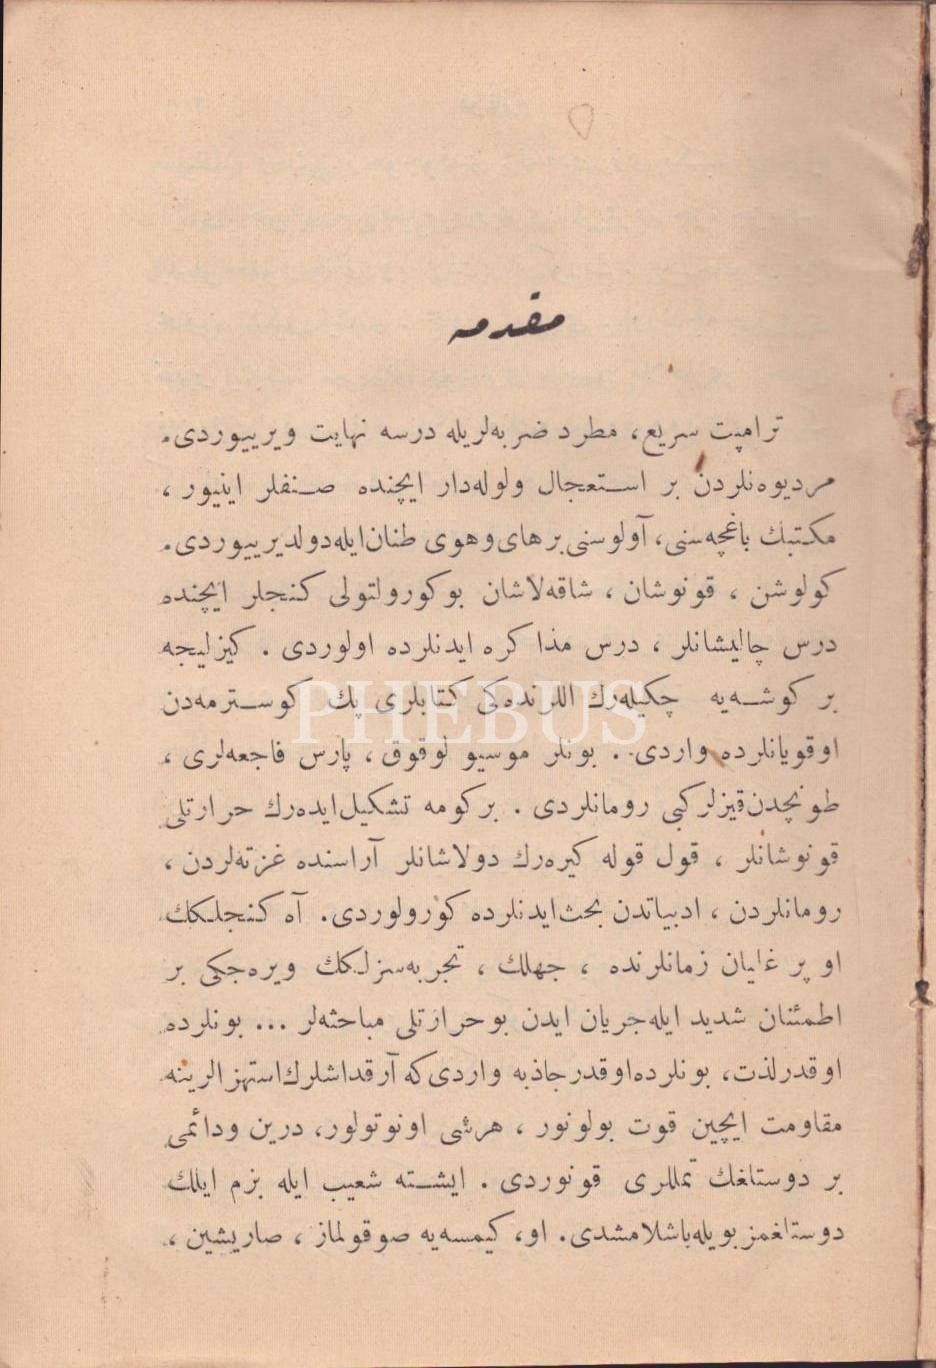 مقدمه
ترامپت سریع، مطرد ضربه‌لریله درسه نهایت ویرییوردی.
مردیوه‌نلردن بر استعجال ولوله‌دار ایچنده صنفلر اینیور ،
مکتبك باغچه‌سنی، آولوسنی برهای وهوی طنان ایله دولدیرییوردی.
کولوشن ، قونوشان ، شاقه‌لاشان بوکورولتولی کنجلر ایچنده
درس چالیشانلر ، درس مذاکره ایدنلرده اولوردی . کیزلیجه
بر کوشه‌یه چکیله‌رك اللرنده‌کی کتابلری پك کوسترمه‌دن
اوقویانلرده واردی .. بونلر موسیو لوقوق، پارس فاجعه‌لری ،
طونجدن قیزلرکبی رومانلردی . برکومه تشکیل ایده‌رك حرارتلی
قونوشانلر ، قول قوله کیره‌رك دولاشانلر آراسنده غزته‌لردن ،
رومانلردن ، ادبیاتدن بحث ایدنلرده کورولوردی. آه کنجلکك
او پر غلیان زمانلرنده ، جهلك ، تجربه‌سزلکك ویره‌جکی بر
اطمئنان شدید ایله جریان ایدن بو حرارتلی مباحثه‌لر ... بونلرده
اوقدر لذت، بونلرده اوقدر جاذبه واردی که آرقداشلرك استهزالرینه
مقاومت ایچین قوت بولونور ، هرشی اونوتولور، درین ودائمی
بر دوستلغك تمللری قونوردی . ایشته شعیب ایله بزم ایلك
دوستلغمز بویله باشلامشدی. او، کیمسه‌یه صوقولماز ، صاریشین ،
PHEBUS